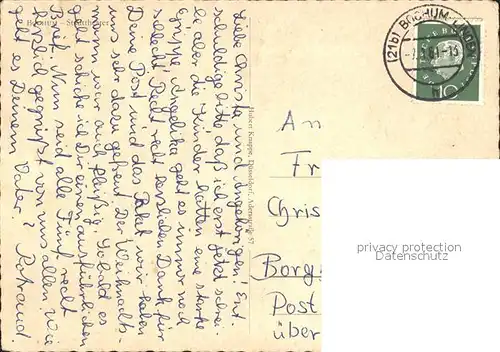 Bochum - Stadttheater
Liebe Christa und Angehörigen! Ent-
schuldige bitte, daß ich erst jetzt schrei-
be aber die Kinder hatten eine starke
Grippe Angelika geht es immer noch
schlecht. Recht recht herzlichen Dank für
Deine Post und das Paket wir haben
uns sehr dazu gefreut. Der Weihnachts-
mann war auch fleißig. Sobald es
geht schicke ich Dir einen ausführlichen
Brief. Nun seid alle Fünf recht
lieb gegrüßt von uns allen. Wie
geht es Deinem Vater?
Hubert Knuppe, Düsseldorf,
(21b) BOCHUM-LINDEN
10
An
Fr
Chris
Borg
Post
über
privacy protection
Webmaster